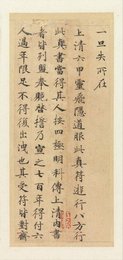 一旦失所在
上清六甲靈飛隱道服此真符遊行八方行
此真書當得其人按四極明科傳上清內書
者皆列盟奉贶啓誓乃宣之七百年得付六
人過年限足不得復出泄也其受符皆對齋